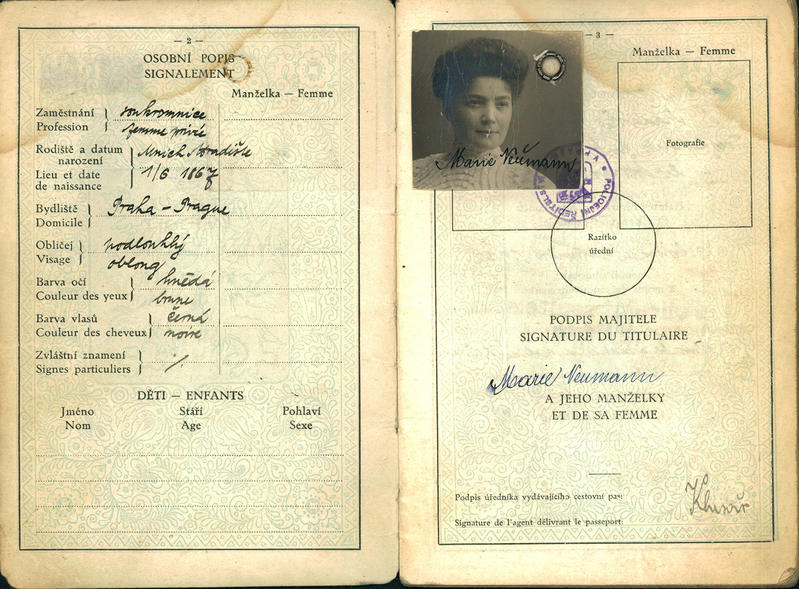 — 2 —
OSOBNÍ POPIS
SIGNALEMENT
Manželka — Femme
Zaměstnání
Profession
soukromnice
femme privée
Rodiště a datum
narození
Lieu et date
de naissance
Mnich. Hradiště
1/6 1867
Bydliště
Domicile
Praha - Prague
Obličej
Visage
podlouhlý
oblong
Barva očí
Couleur des yeux
hnědá
brune
Barva vlasů
Couleur des cheveux
černá
noire
Zvláštní znamení
Signes particuliers
DĚTI — ENFANTS
Jméno Stáří Pohlaví
Nom Age Sexe
— 3 —
Manželka — Femme
Marie Neumann
Fotografie
POLICEJNÍ ŘEDITELS
Razítko
úřední
PODPIS MAJITELE
SIGNATURE DU TITULAIRE
Marie Neumann
A JEHO MANŽELKY
ET DE SA FEMME
Podpis úředníka vydávajícího cestovní pas:
Signature de l'agent délivrant le passeport: